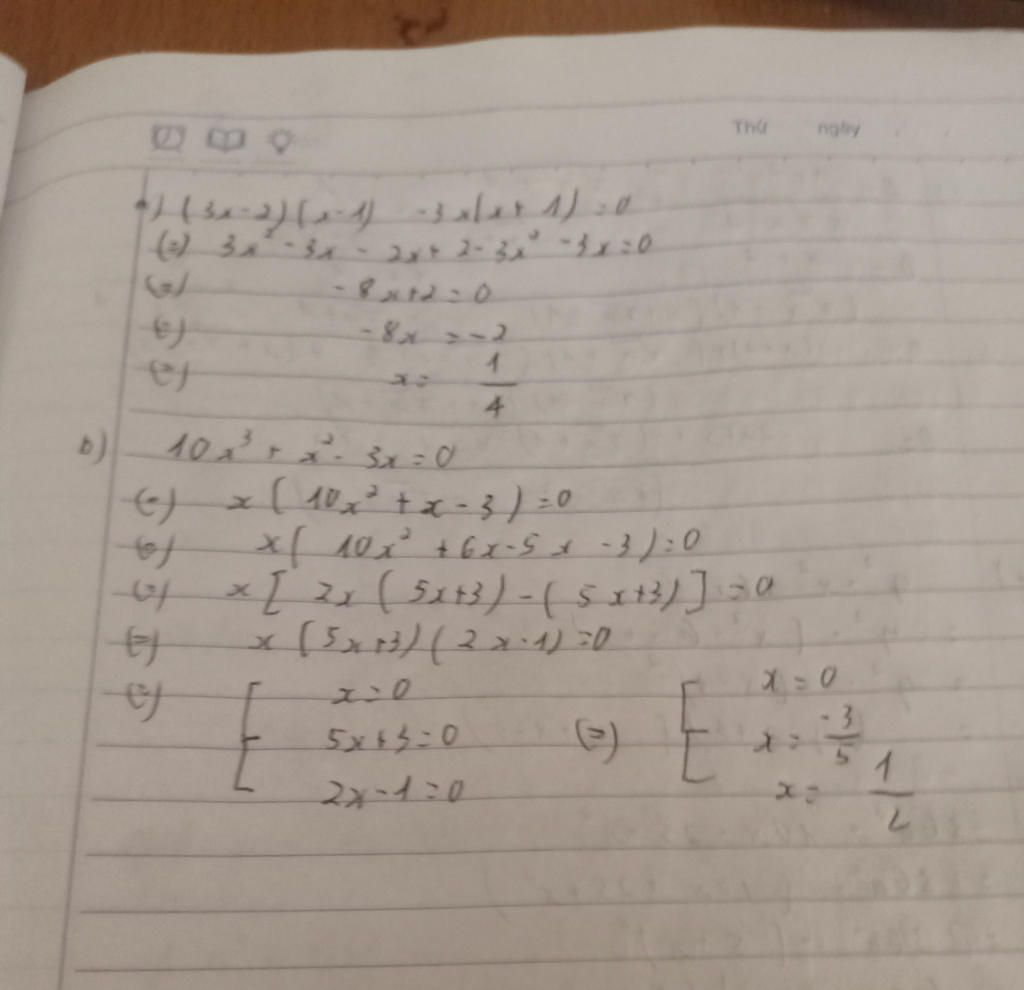 Thứ ngày
a) (3x-2)(x-1) -3x(x+1)=0
(=) 3x² - 3x - 2x + 2 - 3x² - 3x = 0
(=) -8x+2=0
(=) -8x = -2
(=) x = 1/4
b) 10x³ + x² - 3x = 0
(=) x ( 10x² + x - 3 ) = 0
(=) x ( 10x² + 6x - 5x - 3 ) = 0
(=) x [ 2x ( 5x+3 ) - ( 5x+3 ) ] = 0
(=) x ( 5x+3 ) ( 2x-1 ) = 0
(=) [ x=0 x=0
5x+3=0 (=) [ x= -3/5
2x-1=0 x= 1/2